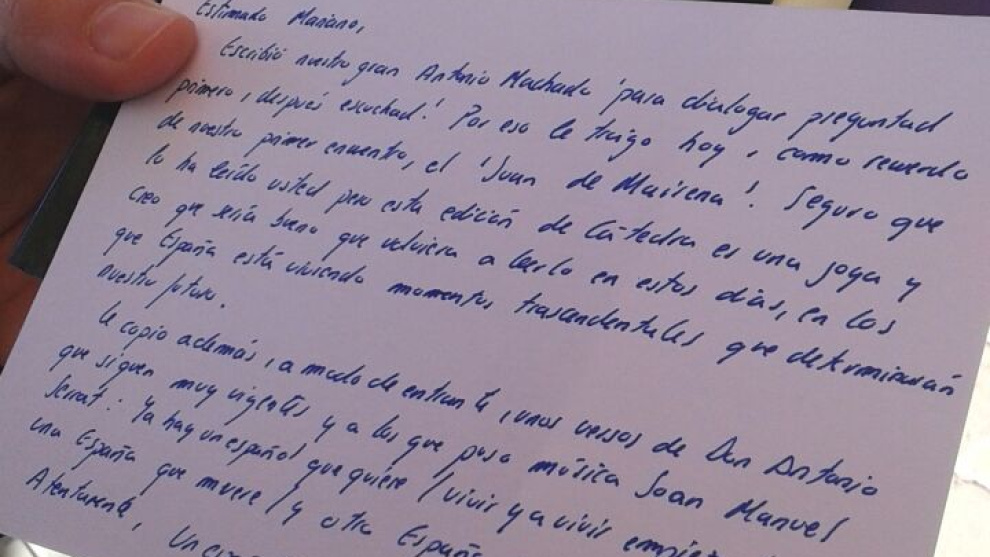 Estimado Mariano,
Escribió nuestro gran Antonio Machado 'para dialogar preguntad
primero, después escuchad'. Por eso le traigo hoy, como recuerdo
de nuestro primer encuentro, el 'Juan de Mairena'. Seguro que
lo ha leído usted pero esta edición de Cátedra es una joya y
creo que sería bueno que volviera a leerlo en estos días, en los
que España está viviendo momentos trascendentales que determinarán
nuestro futuro.
Le copio además, a modo de entrante, unos versos de Don Antonio
que siguen muy vigentes y a los que puso música Joan Manuel
Serrat: Ya hay un español que quiere / vivir y a vivir empie
una España que muere / y otra España
Atentamente, Un